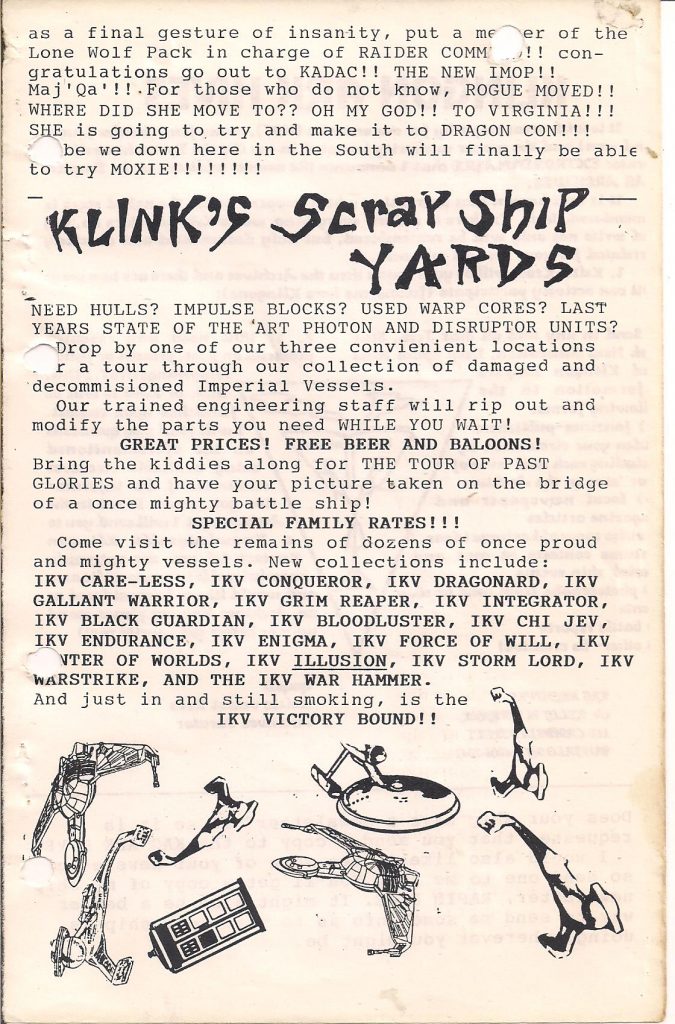 as a final gesture of insanity, put a me er of the
Lone Wolf Pack in charge of RAIDER COMM !! con-
gratulations go out to KADAC!! THE NEW IMOP!!
Maj'Qa'!! For those who do not know, ROGUE MOVED!!
WHERE DID SHE MOVE TO?? OH MY GOD!! TO VIRGINIA!!!
SHE is going to try and make it to DRAGON CON!!!
be we down here in the South will finally be able
to try MOXIE!!!!!!!!
KLINK'S Scrap Ship
YARDS
NEED HULLS? IMPULSE BLOCKS? USED WARP CORES? LAST
YEARS STATE OF THE ART PHOTON AND DISRUPTOR UNITS?
Drop by one of our three convienient locations
r a tour through our collection of damaged and
decommisioned Imperial Vessels.
Our trained engineering staff will rip out and
modify the parts you need WHILE YOU WAIT!
GREAT PRICES! FREE BEER AND BALOONS!
Bring the kiddies along for THE TOUR OF PAST
GLORIES and have your picture taken on the bridge
of a once mighty battle ship!
SPECIAL FAMILY RATES!!!
Come visit the remains of dozens of once proud
and mighty vessels. New collections include:
IKV CARE-LESS, IKV CONQUEROR, IKV DRAGONARD, IKV
GALLANT WARRIOR, IKV GRIM REAPER, IKV INTEGRATOR,
IKV BLACK GUARDIAN, IKV BLOODLUSTER, IKV CHI JEV,
IKV ENDURANCE, IKV ENIGMA, IKV FORCE OF WILL, IKV
NTER OF WORLDS, IKV ILLUSION, IKV STORM LORD, IKV
WARSTRIKE, AND THE IKV WAR HAMMER.
And just in and still smoking, is the
IKV VICTORY BOUND!!